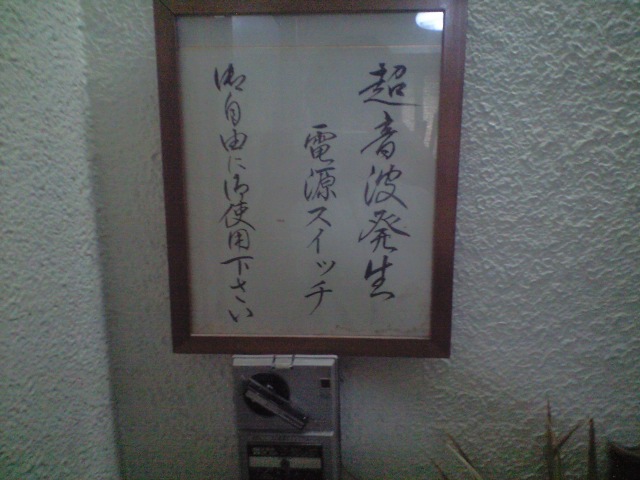 超音波発生
電源スイッチ
御自由に御使用下さい